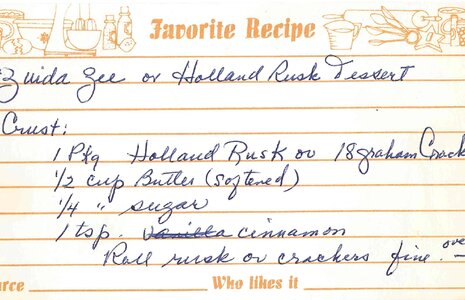 Favorite Recipe
Zuida Zee or Holland Rusk Dessert
Crust:
1 Pkg Holland Rusk or 18 graham Crack
1/2 cup Butter (softened)
1/4 " sugar
1 tsp. vanilla cinnamon
Roll rusk or crackers fine. ove
urce Who likes it